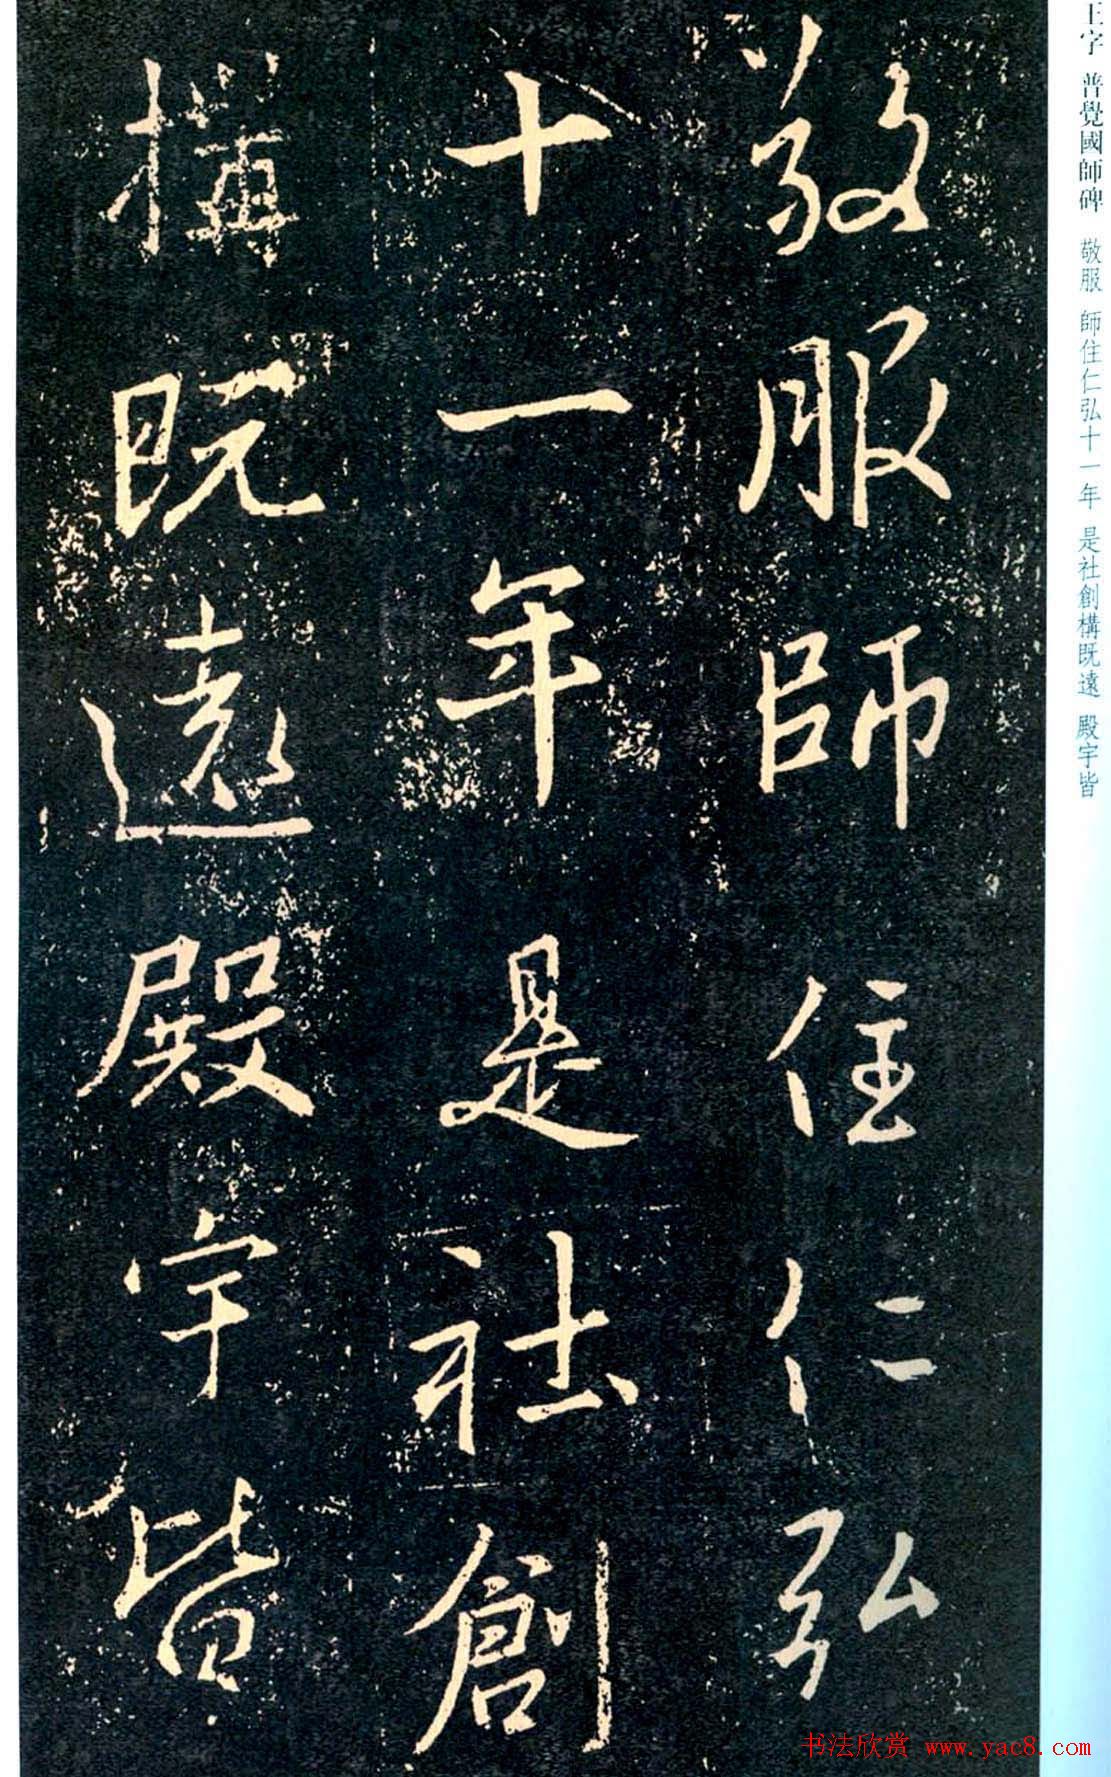 敬服師住仁弘
十一年是社創
構既遠殿宇皆
王字 普覺國師碑 敬服 師住仁弘十一年 是社創構既遠 殿宇皆
书法欣赏 www.yac8.com